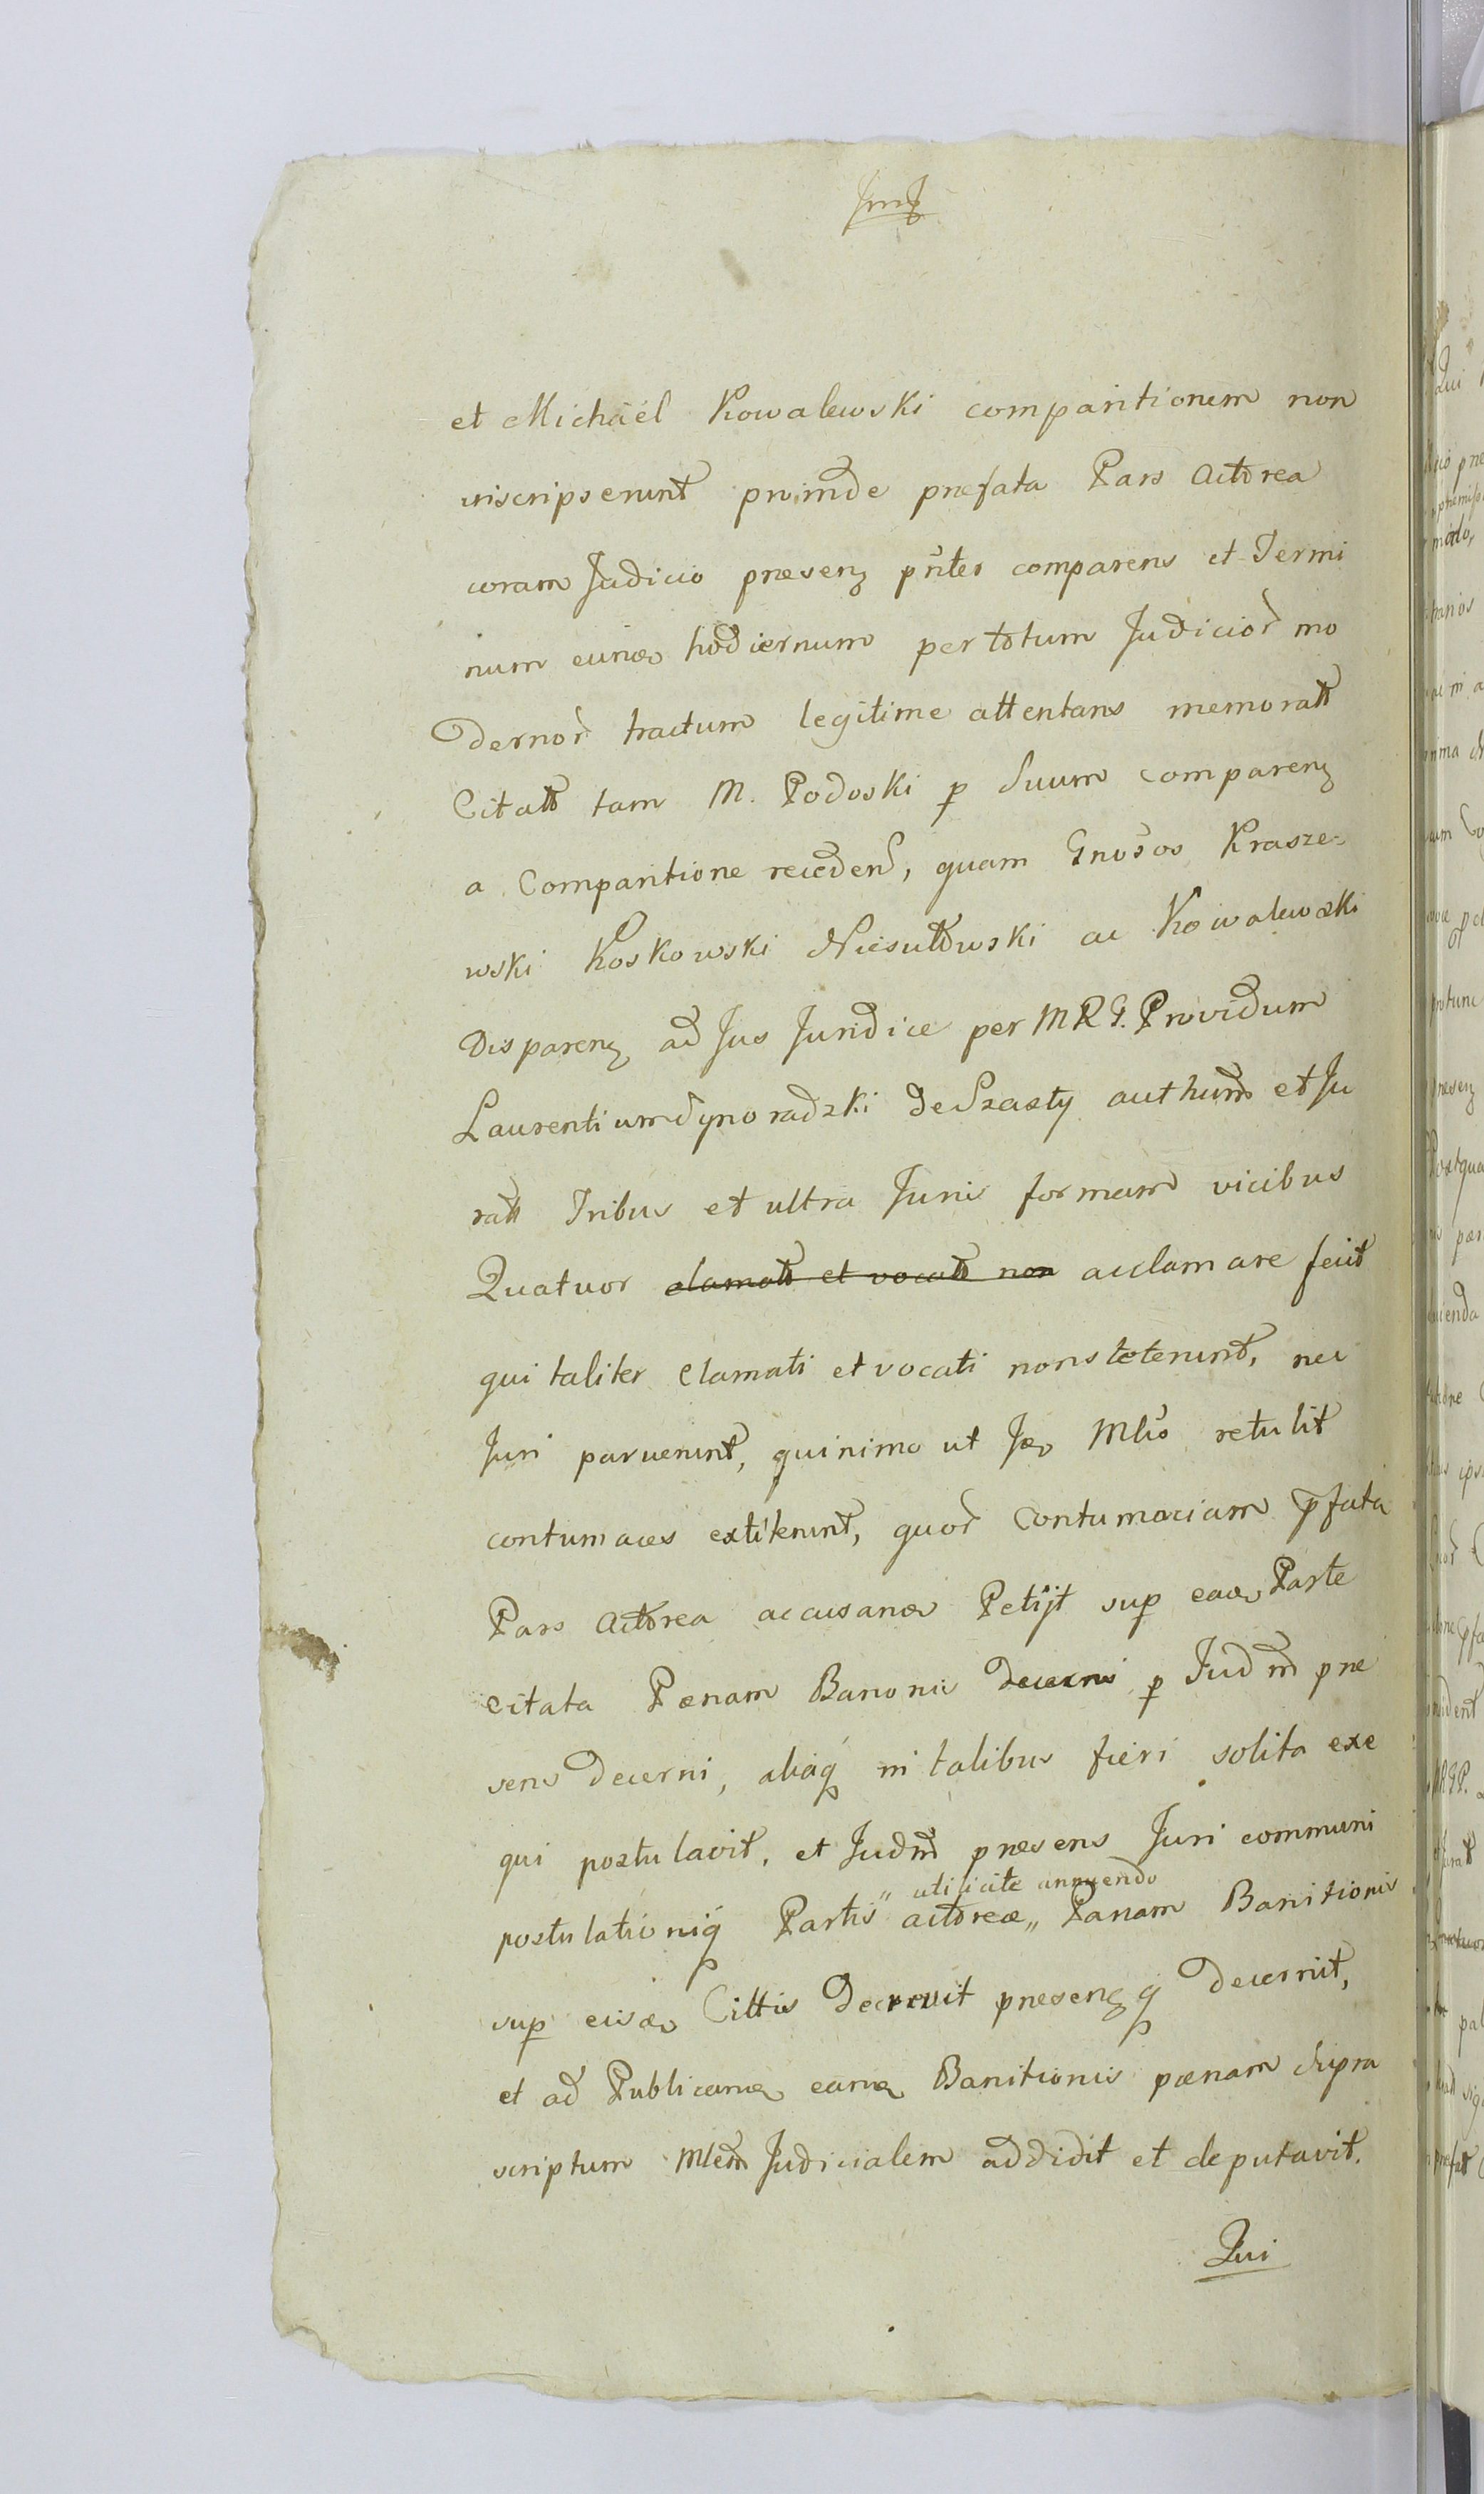 et Michäel Kowalewski comparitionem non
inscripserunt proinde præfata Pars Actorea
coram Judicio præsenz pñter comparens et Termi
num eunđ hodiernum per totum Judicioꝝ mo
dernoꝝ tractum legitime attentans memoratt
Citatt tam M. Podoski p Suum comparenz
a Comparitione recedenꝭ, quam Gnosos Krasze-
wski Koskowski Niesułowski ac Kowalewski
Disparenz ad Jus Juridice per MRG. Providum
Laurentium Synoradzki de Szasty authum et Ju
ratt Tribus et ultra Juris formam vicibus
Quatuor clamatt et vocatt non acclamare fecit
qui taliter clamati et vocati non steterunt, nec
Juri paruerunt, quinimo ut Id Mlis retulit
contumaces extiterunt, quoꝝ Contumaciam pfata
Pars Actorea accusanđ Petijt sup eađ Parte
citata Pænam Banonis decerni p Judm præ
sens decerni, aliaq in talibus fieri solita exe
qui postulavit, et Judm præsens Juri communi
postulationiq Partis actoreæ „ utijcite annuendo „ Pænam Banitionis
sup eisđ Cittis Decrevit præsenzq decernit,
et ad Publicanđ eanđ Banitionis pænam Supra
scriptum Mlem Judicialem addidit et deputavit.
Qui